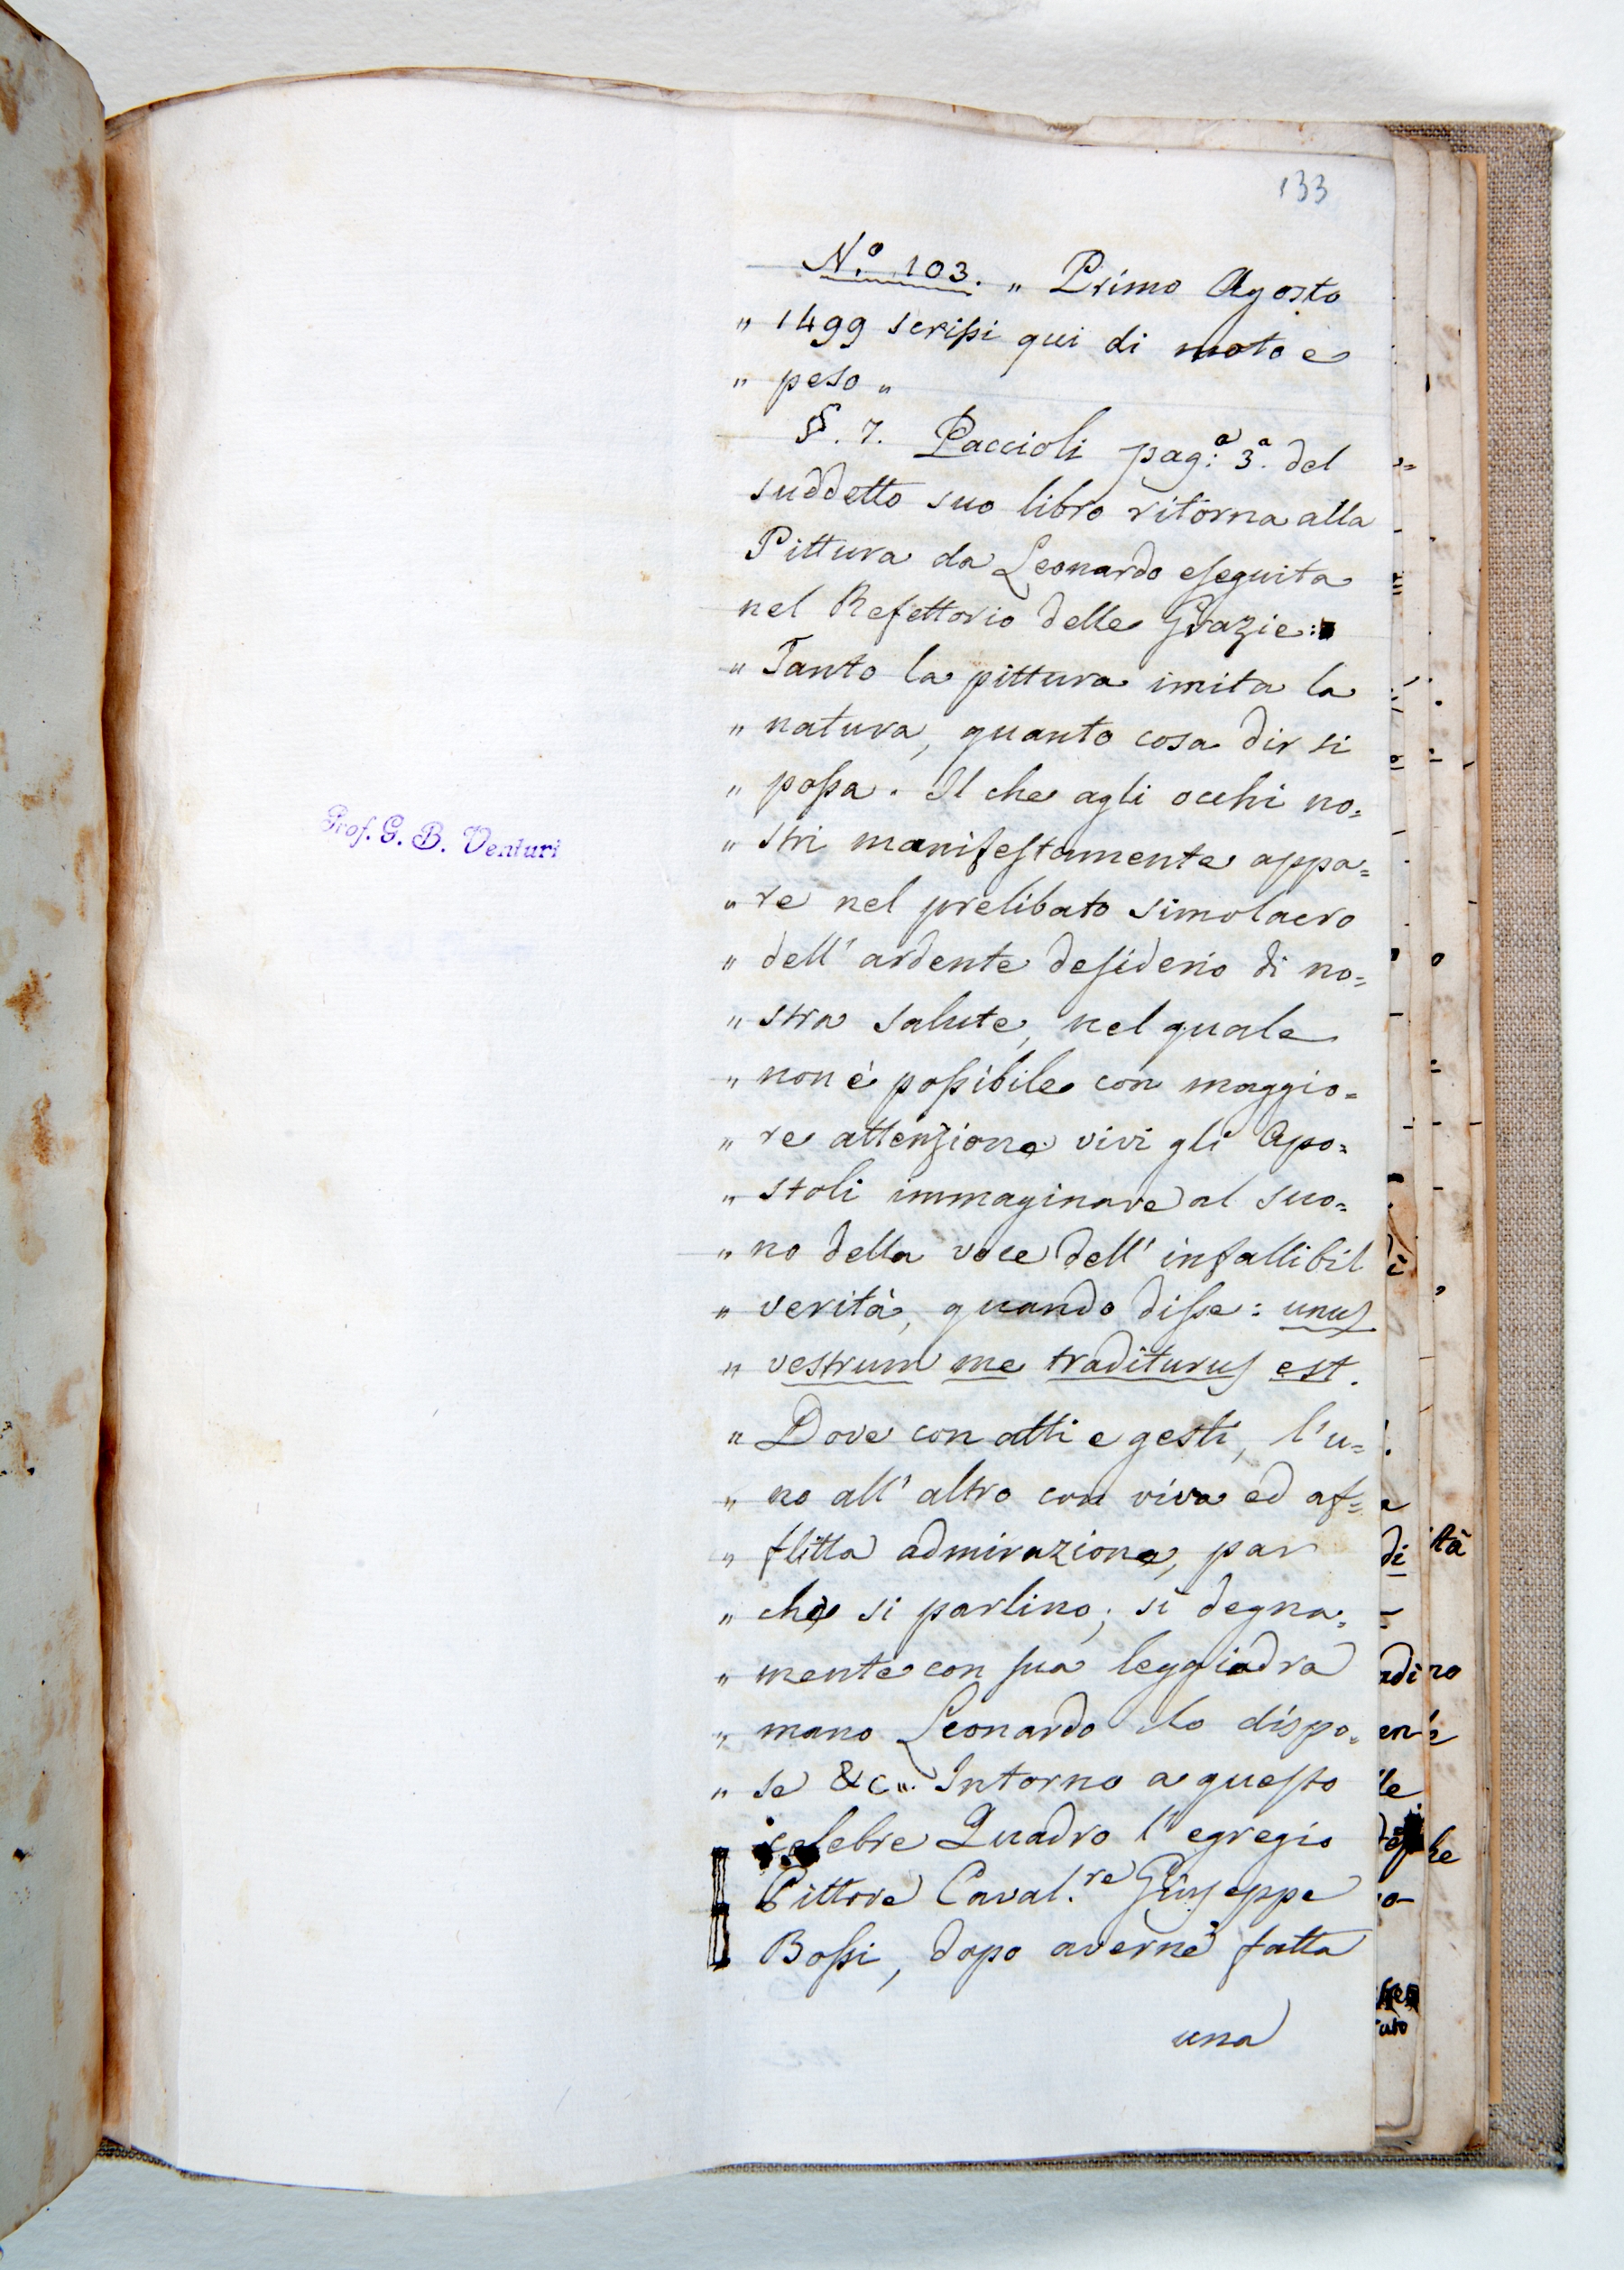 133
N.º 103. „ Primo Agosto
„ 1499 scrissi qui di moto e
„ peso „
§. 7. Paccioli pag:ª 3.ª del
suddetto suo libro ritorna alla
Pittura da Leonardo eseguita
nel Refettorio delle Grazie:
„ Tanto la pittura imita la
„ natura, quanto cosa dir si
„ possa. Il che agli occhi no=
„ stri manifestamente appa=
„ re nel prelibato simolacro
„ dell' ardente desiderio di no=
„ stra salute, nel quale
„ non è possibile con maggio=
„ re attenzione vivi gli Apo=
„ stoli immaginare al suo=
„ no della voce dell' infallibil
„ verità, quando disse: unus
„ vestrum me traditurus est.
„ Dove con atti e gesti, l'u=
„ no all' altro con viva ed af=
„ flitta admirazione, par
„ che si parlino; sì degna=
„ mente con sua leggiadra
„ mano Leonardo lo dispo=
„ se &c„. Intorno a questo
celebre Quadro l' egregio
Pittore Caval.re Giuseppe
Bossi, dopo averne fatta
una
Prof. G. B. Venturi